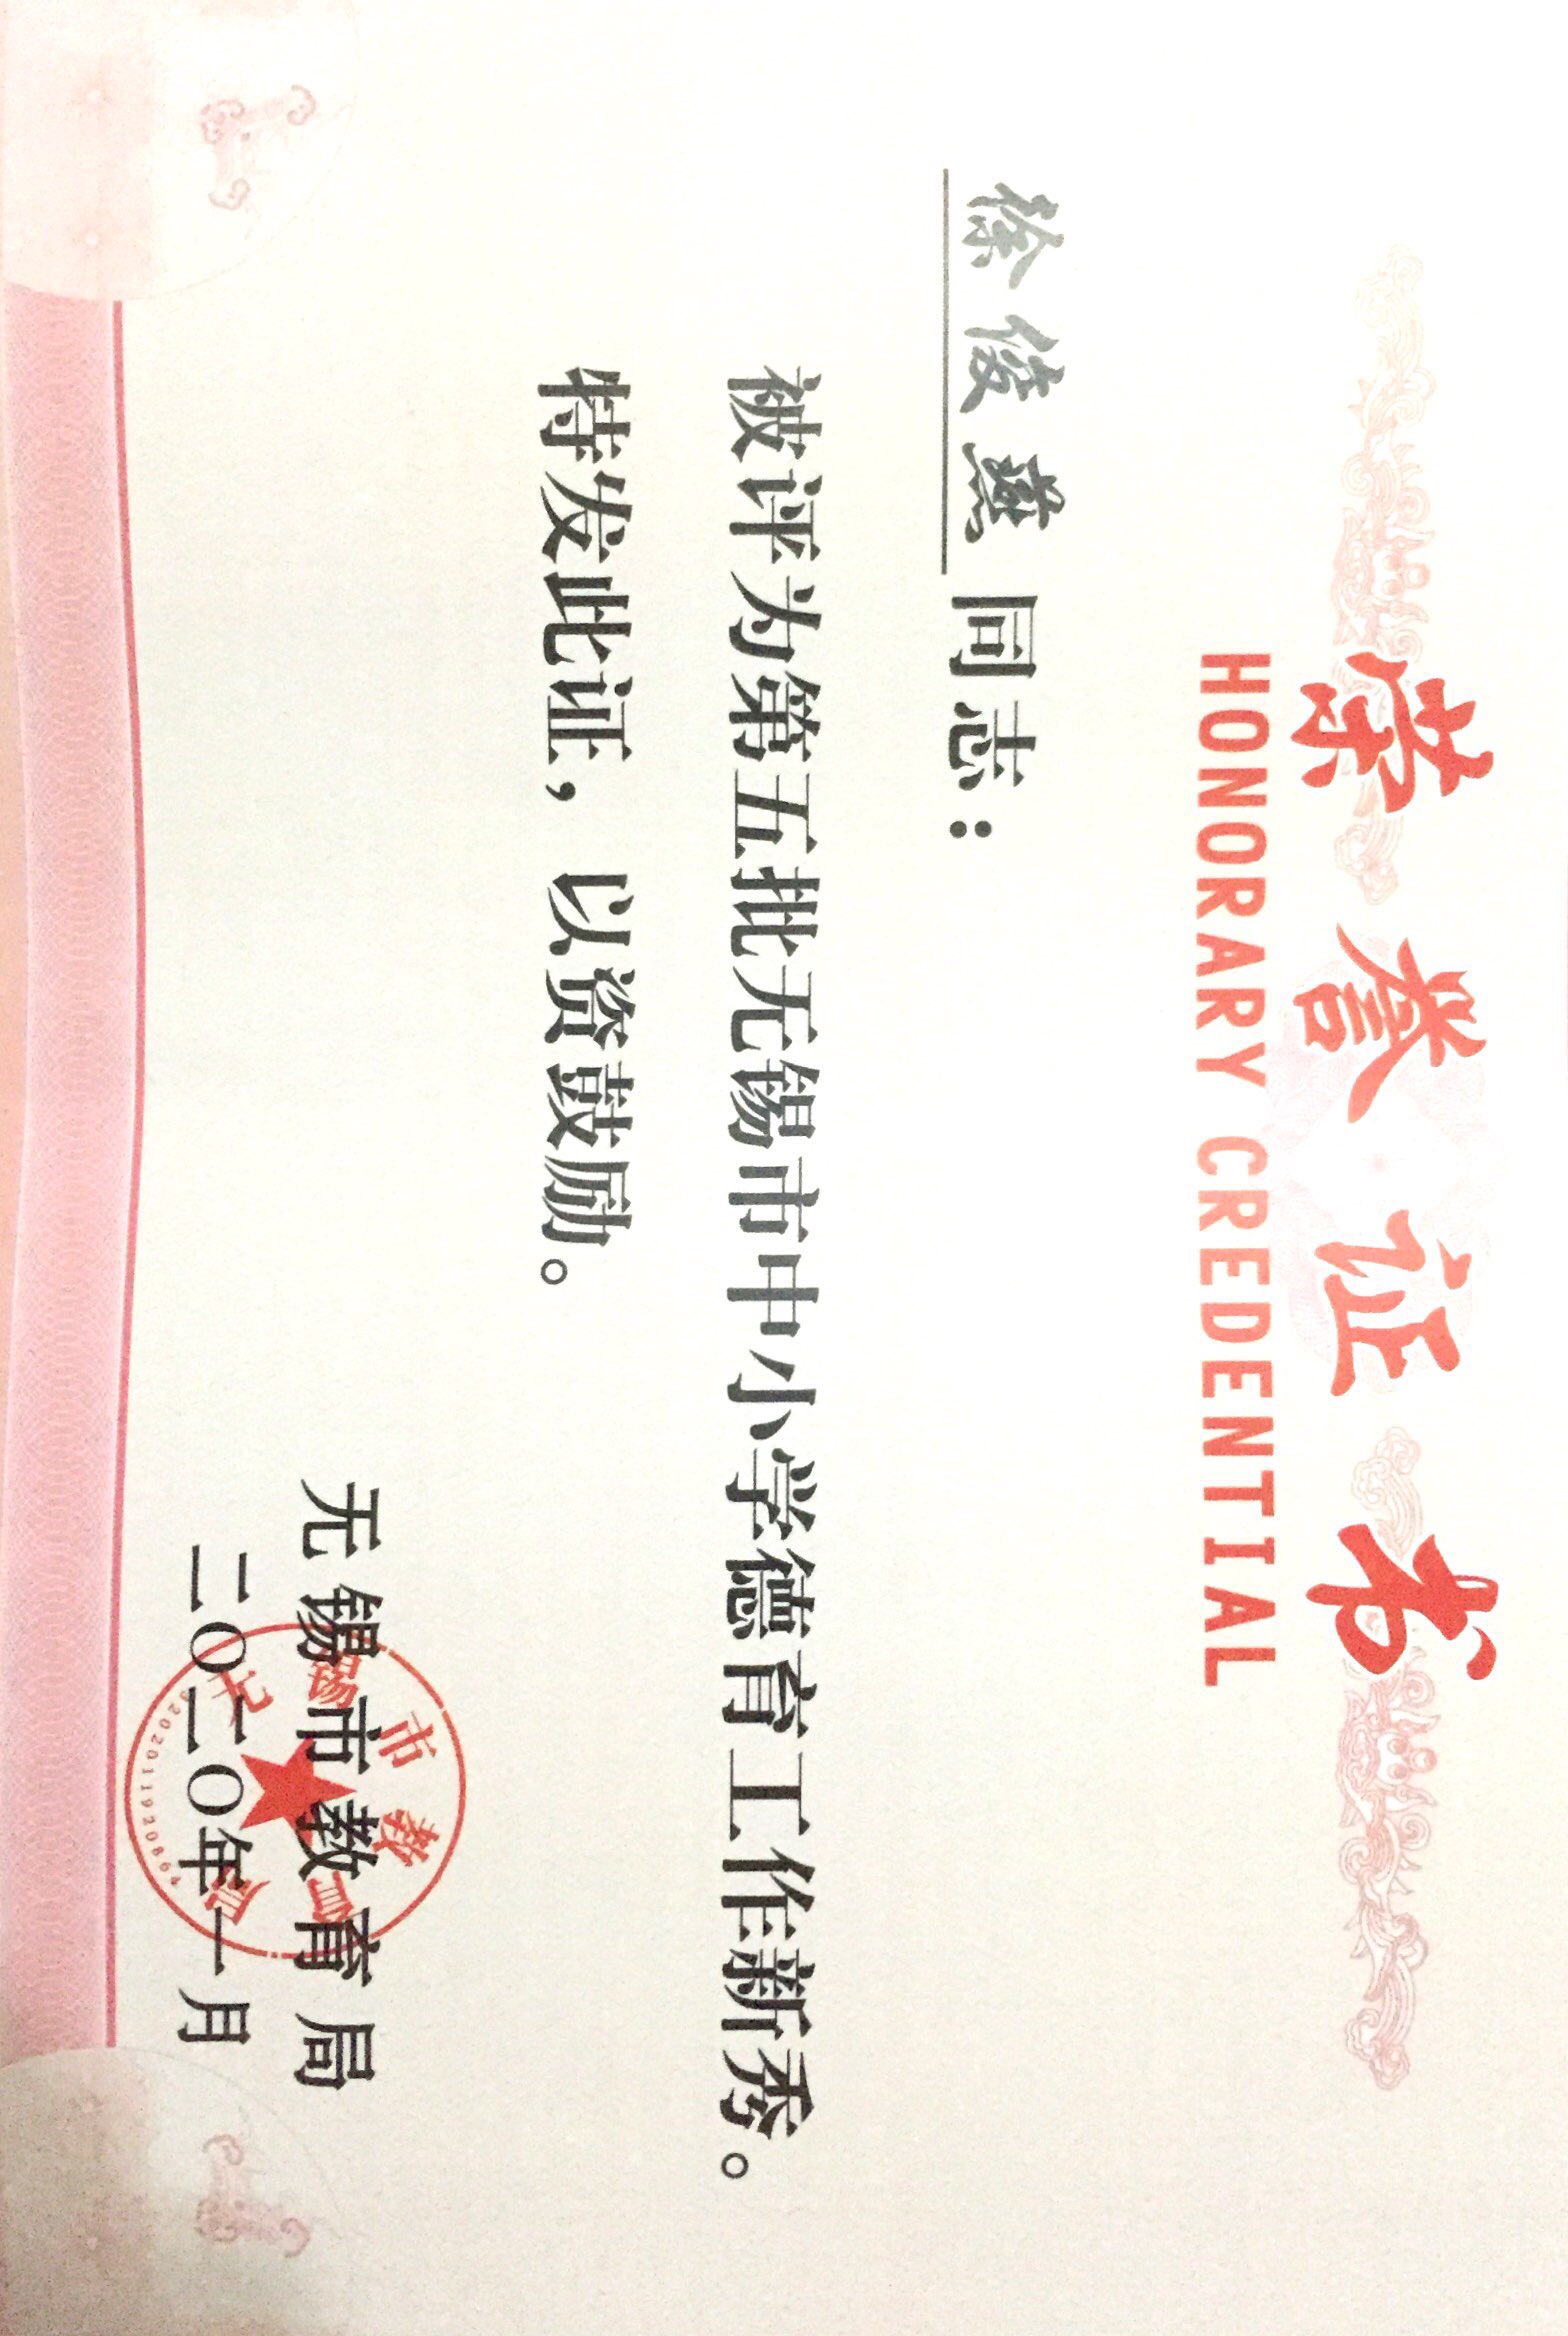 荣誉证书
HONORARY CREDENTIAL
徐俊燕同志：
被评为第五批无锡市中小学德育工作新秀。
特发此证，以资鼓励。
无锡市教育局
二〇二〇年一月
无锡市教育局